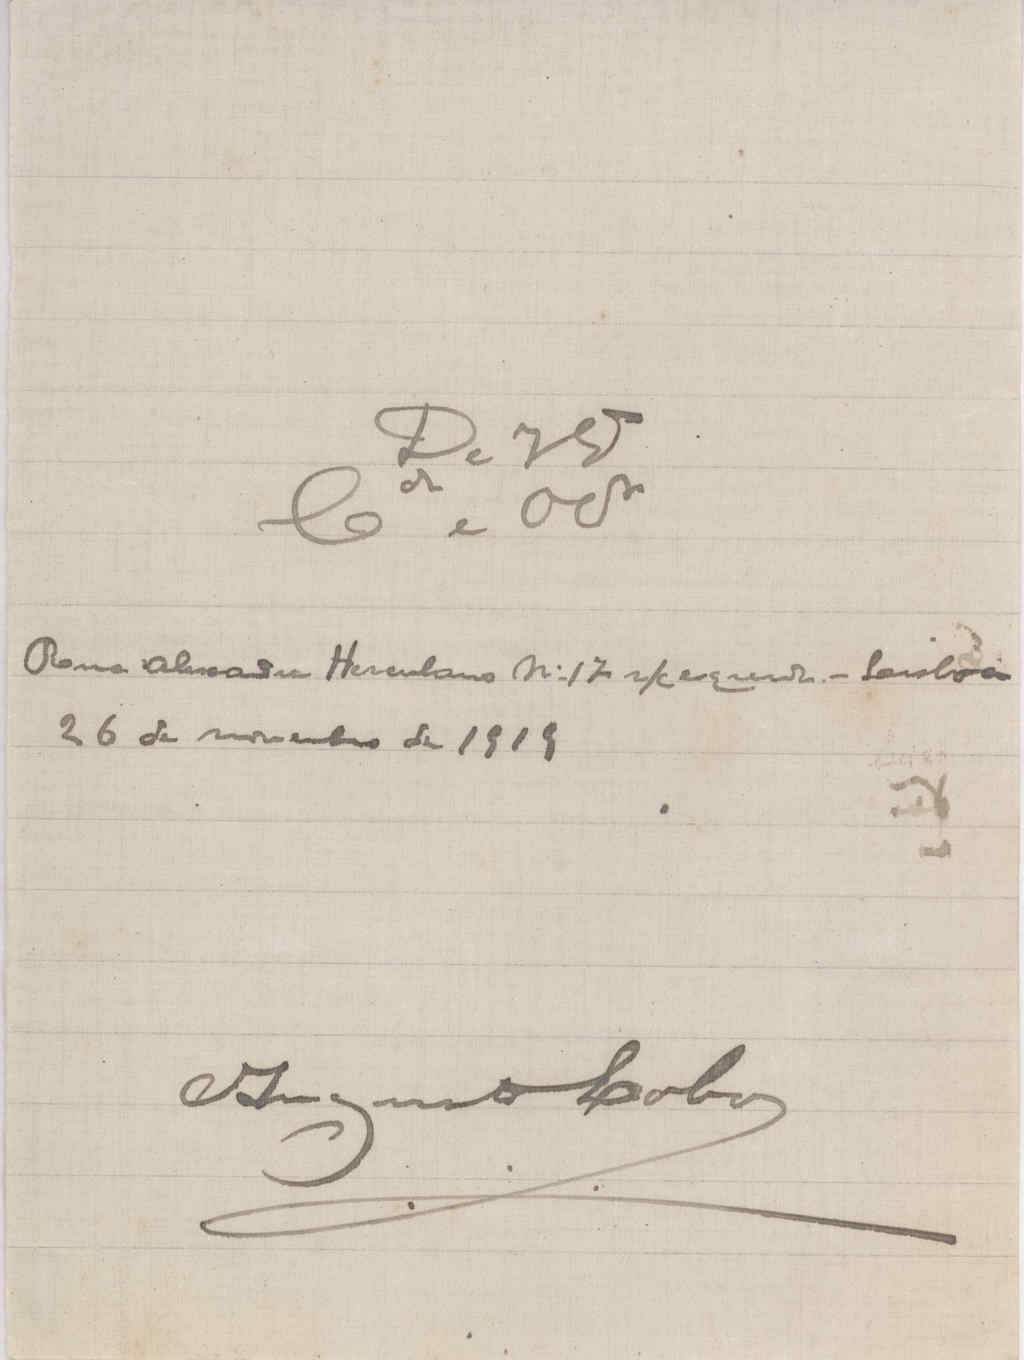 De V. Ex.ª
C.do e Obr.
Rua Alexandre Herculano Nº 17 r/c esquerdo - Lisboa
26 de novembro de 1919
Augusto Lobo